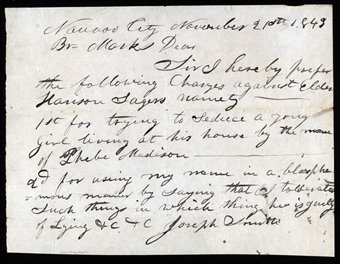 Nauvoo City November 21st 1843
Br Marks Dear
Sir I hereby prefer
the following Charges against Elder
Harison Sagers namely
1st for trying to seduce a young
girl living at his house by the name
of Phebe Madison
2d for using my name in a blasphe
mous maner by saying that I tolerate
such things in which thing he is guilty
of lying &C &C Joseph Smith